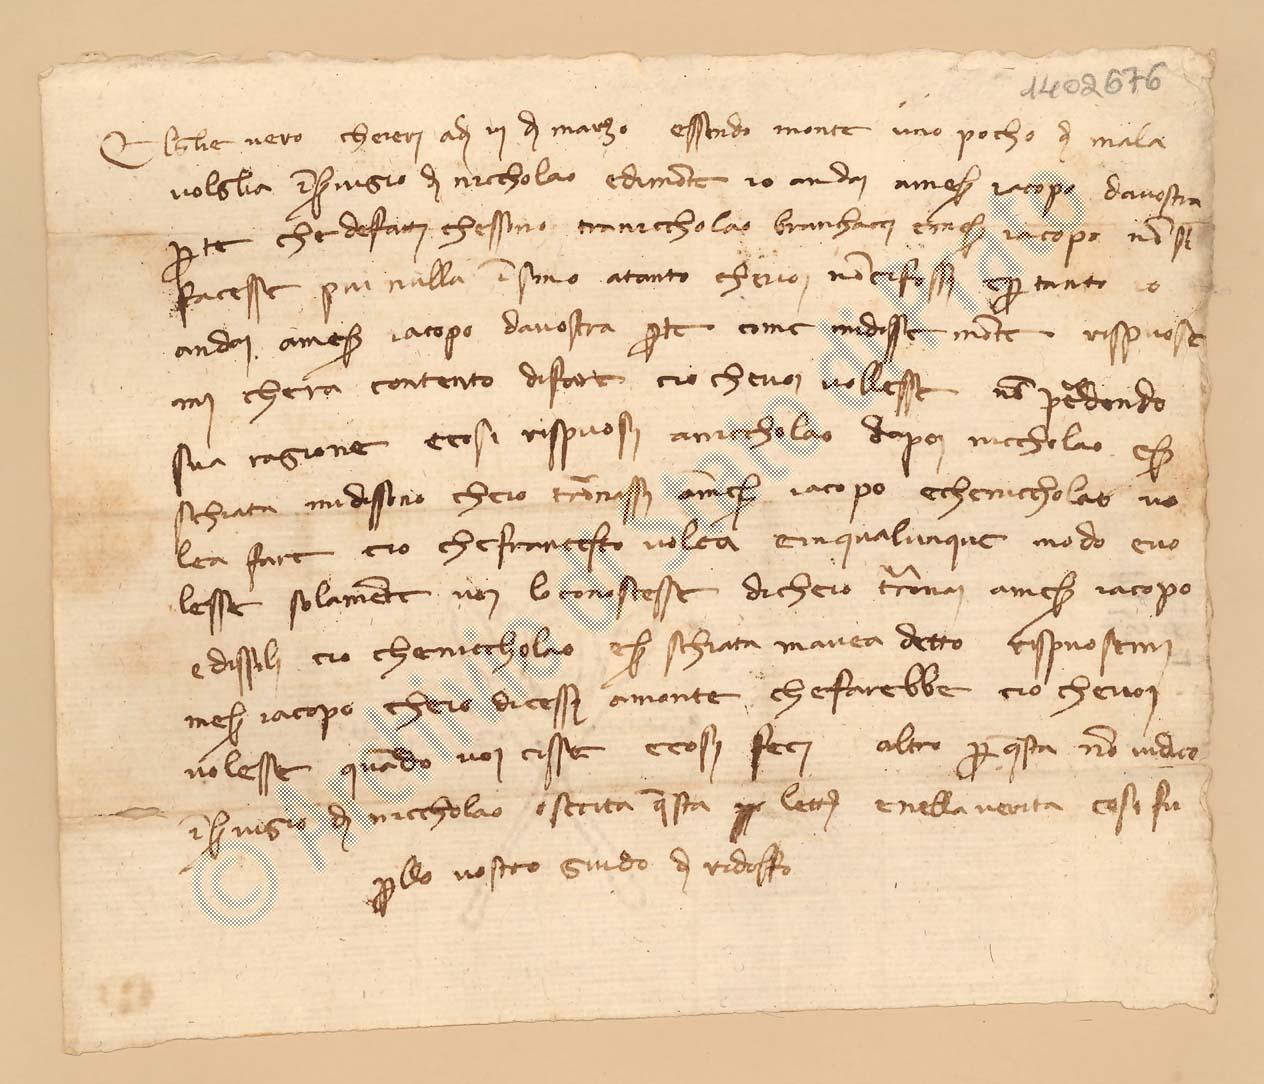 1402676
Elglie vero cheieri adi vi di marzo essendo monte uno pocho di mala
voglia in servigio di niccholao edimonte io andai amess iacopo davostra
parte che defatti chessono traniccholao branchacci emess iacopo non si
facesse piu nulla insino atanto chevoi noncifossi epertanto io
andai amess iacopo davostra parte come midisse monte rispuose
mi chera contento difare cio chevoi vollesse non perdendo
sua ragione ecosi rispuosi aniccholao dapoi niccholao
schiata midissono cheio tornassi amess iacopo echeniccholao vo
lea fare cio chefrancescho volea einqualunque modo evo
lesse solamente voi loconoscesse dicheio tornai amess iacopo
edissili cio cheniccholao schiata mavea detto rispuosemi
mess iacopo cheio dicessi amonte chefarebbe cio chevoi
volesse quando voi cisse ecosi feci altro per questa non vidico
in servigio di niccholao oscrita questa letter enella verita cosi fu
per lo vostro Guido di ridolfo
© Archivio di Stato di Prato